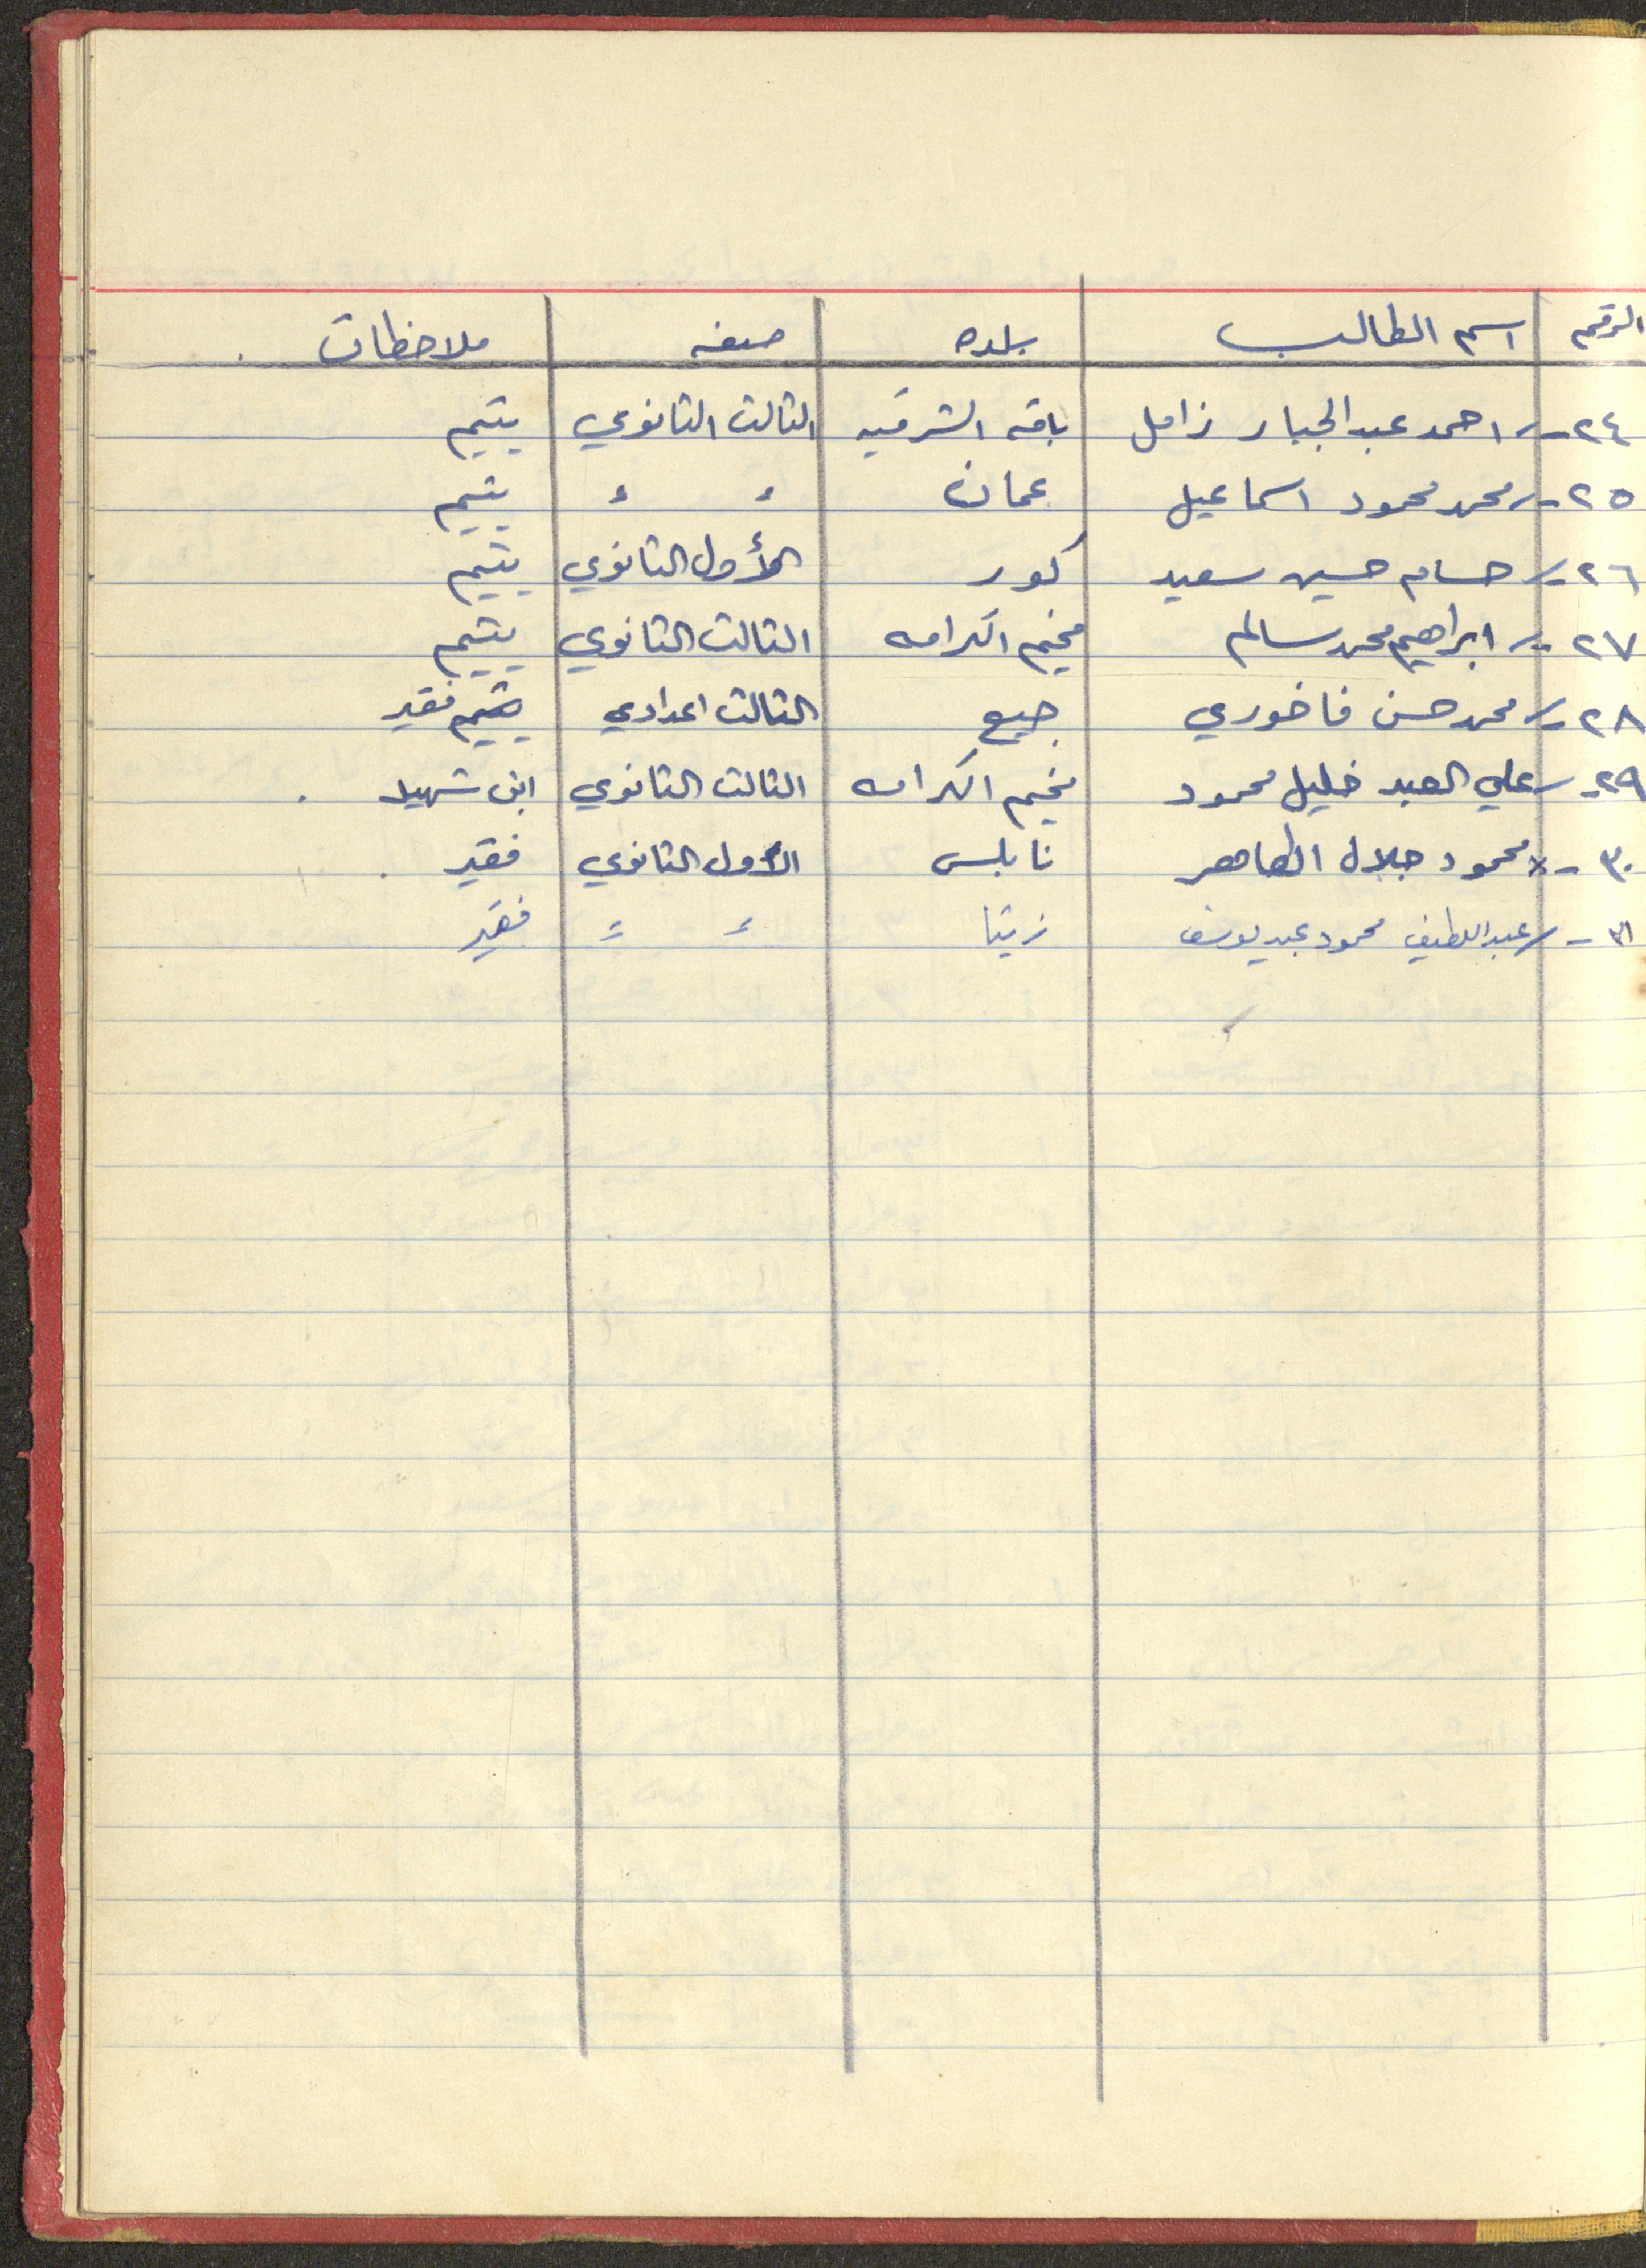 الرقم اسم الطالب بلده صفه ملاحظات
٢٤- احمد عبد الجبار زامل باقه الشرقيه الثالث الثانوي يتيم
٢٥- محمد محمود اسماعيل عمان = = يتيم
٢٦- حسام حسين سعيد كور الأول الثانوي يتيم
٢٧- ابراهيم محمد سالم مخيم الكرامه الثالث الثانوي يتيم
٢٨- محمد حسن فاخوري جبع الثالث اعدادي فقير
٢٩- علي العبد خليل محمود مخيم الكرامه الثالث الثانوي ابن شهيد
٣٠- محمود جلال الطاهر نابلس الأول الثانوي فقير
٣١- عبد اللطيف محمود عبد يوسف زيتا = = فقير